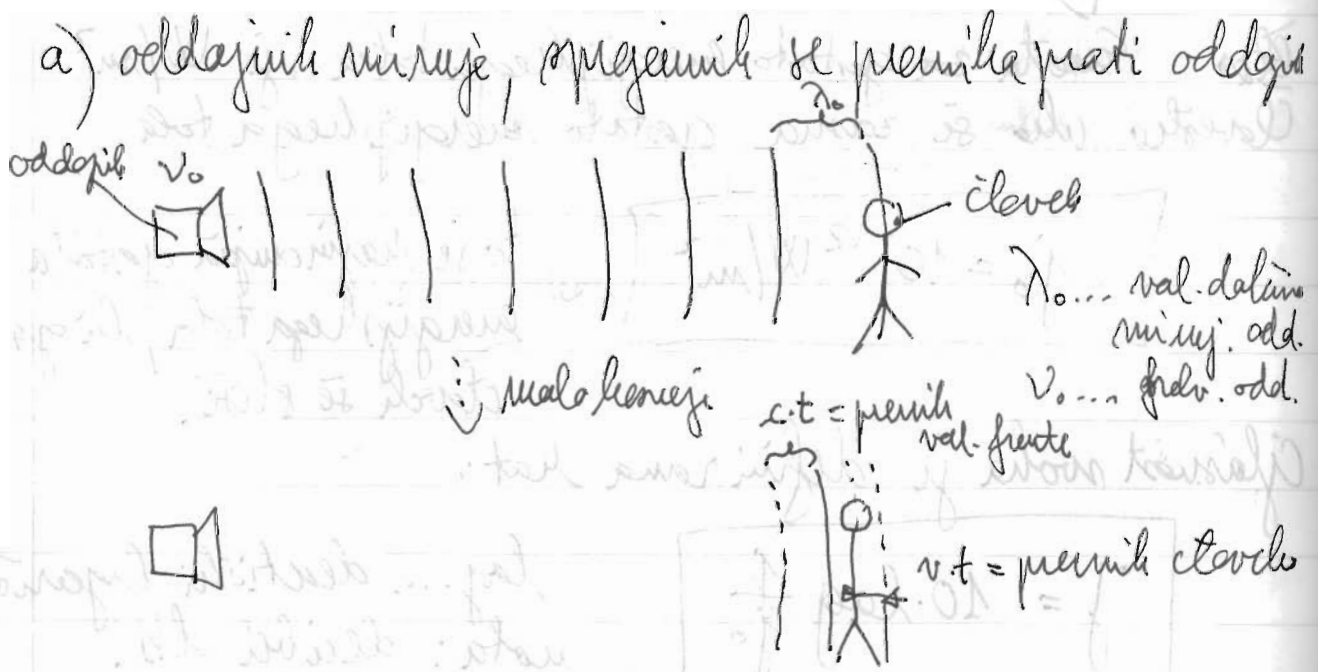 a) oddajnik miruje, sprejemnik se premika proti oddajn
λ₀
oddajnik ν₀
človek
λ₀... val. dolžin
miruj. odd.
ν₀... frekv. odd.
malo kasneje
c.t = premik
val. fronte
v.t = premik človeka